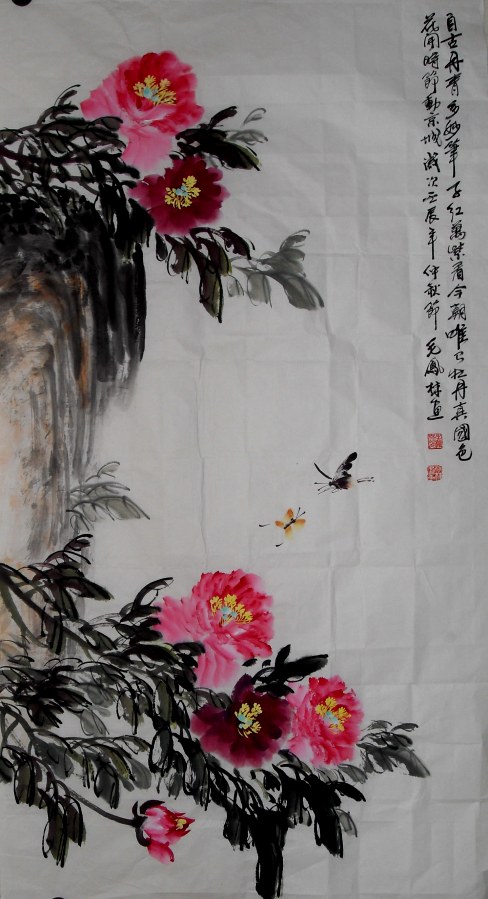 自古丹青多妙筆千紅萬紫看今朝唯有牡丹真國色
花開時節動京城 歲次壬辰年仲秋節毛鳳林畫